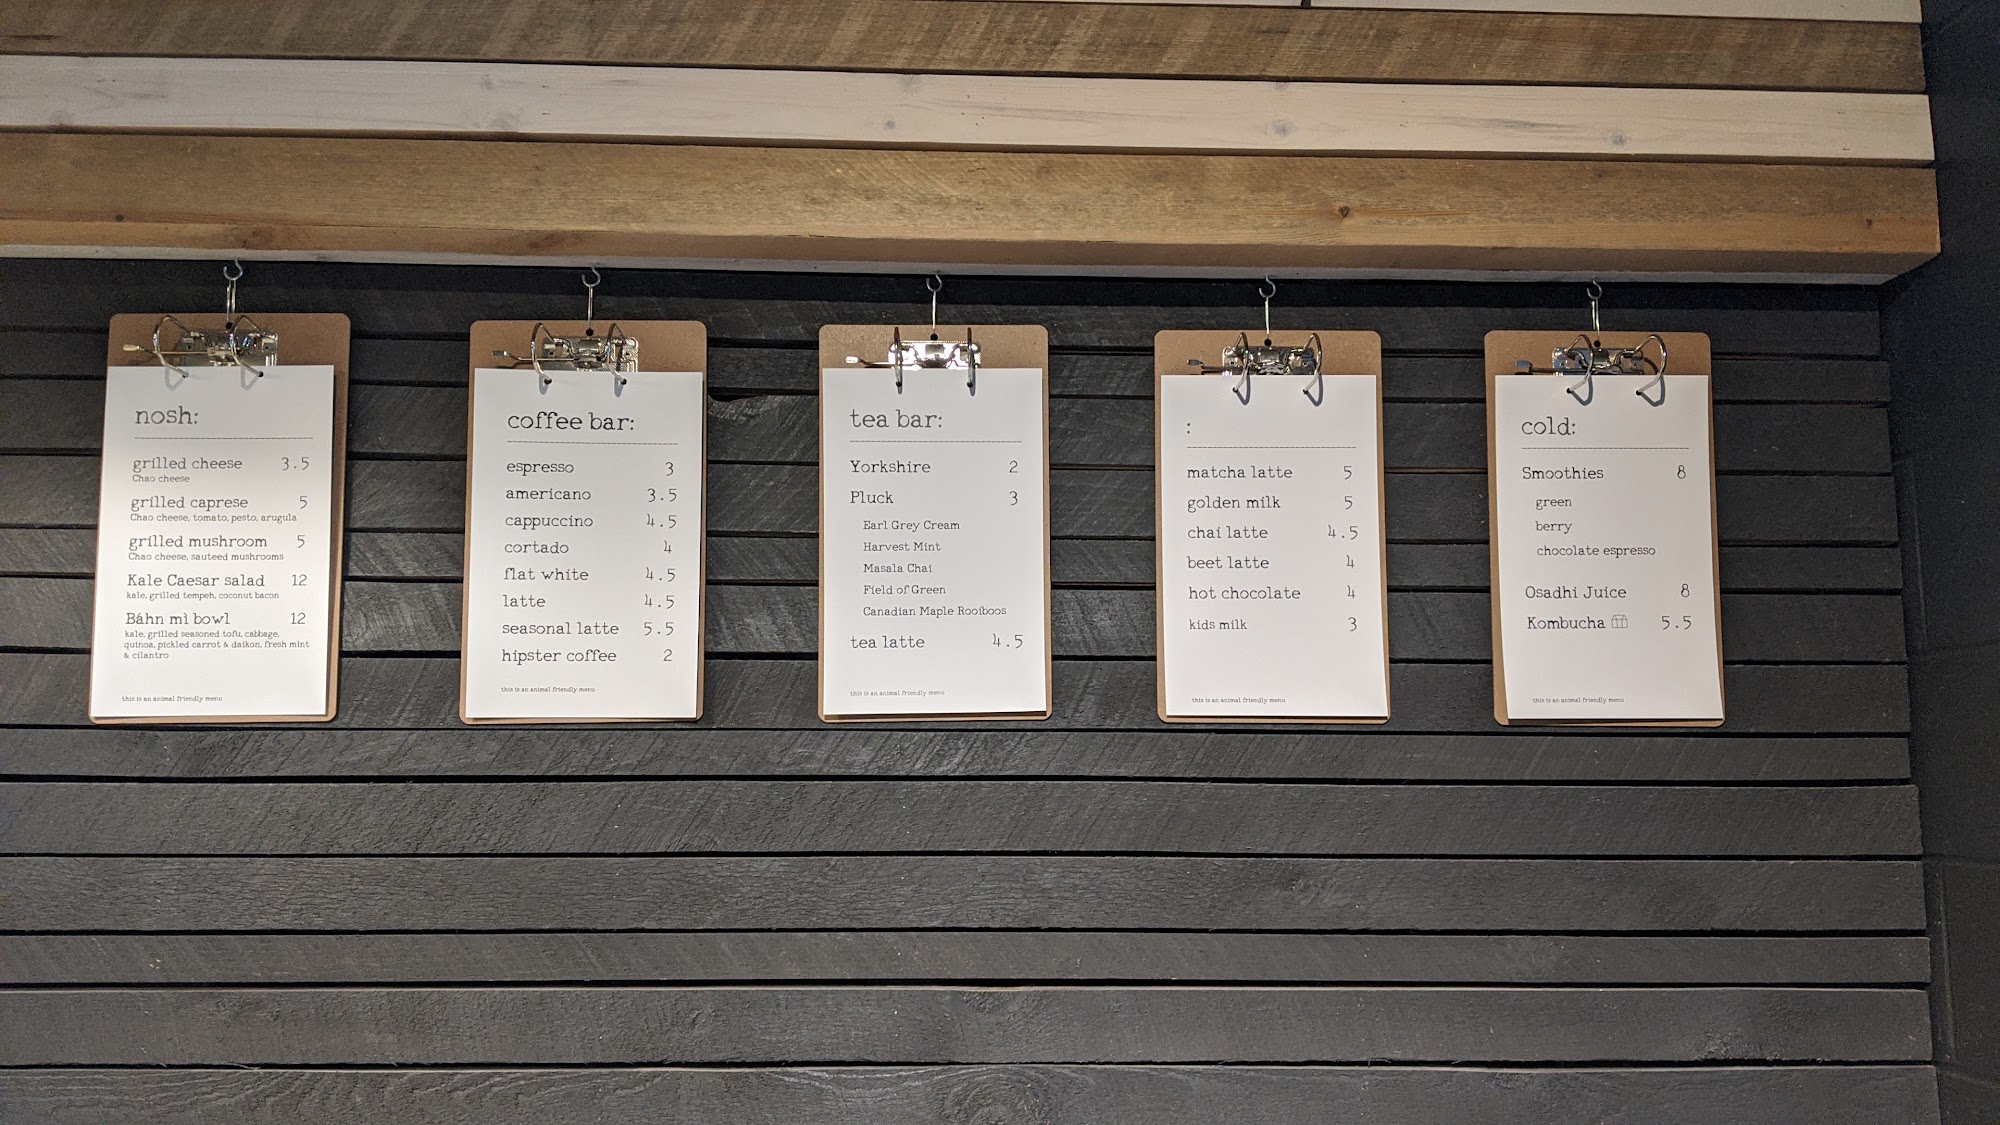 nosh:
grilled cheese 3.5
Chao cheese
grilled caprese 5
Chao cheese, tomato, pesto, arugula
grilled mushroom 5
Chao cheese, sauteed mushrooms
Kale Caesar salad 12
kale, grilled tempeh, coconut bacon
Báhn mì bowl 12
kale, grilled seasoned tofu, cabbage,
quinoa, pickled carrot & daikon, fresh mint
& cilantro
this is an animal friendly menu
coffee bar:
espresso 3
americano 3.5
cappuccino 4.5
cortado 4
flat white 4.5
latte 4.5
seasonal latte 5.5
hipster coffee 2
this is an animal friendly menu
tea bar:
Yorkshire 2
Pluck 3
Earl Grey Cream
Harvest Mint
Masala Chai
Field of Green
Canadian Maple Rooiboos
tea latte 4.5
this is an animal friendly menu
:
matcha latte 5
golden milk 5
chai latte 4.5
beet latte 4
hot chocolate 4
kids milk 3
this is an animal friendly menu
cold:
Smoothies 8
green
berry
chocolate espresso
Osadhi Juice 8
Kombucha 5.5
this is an animal friendly menu